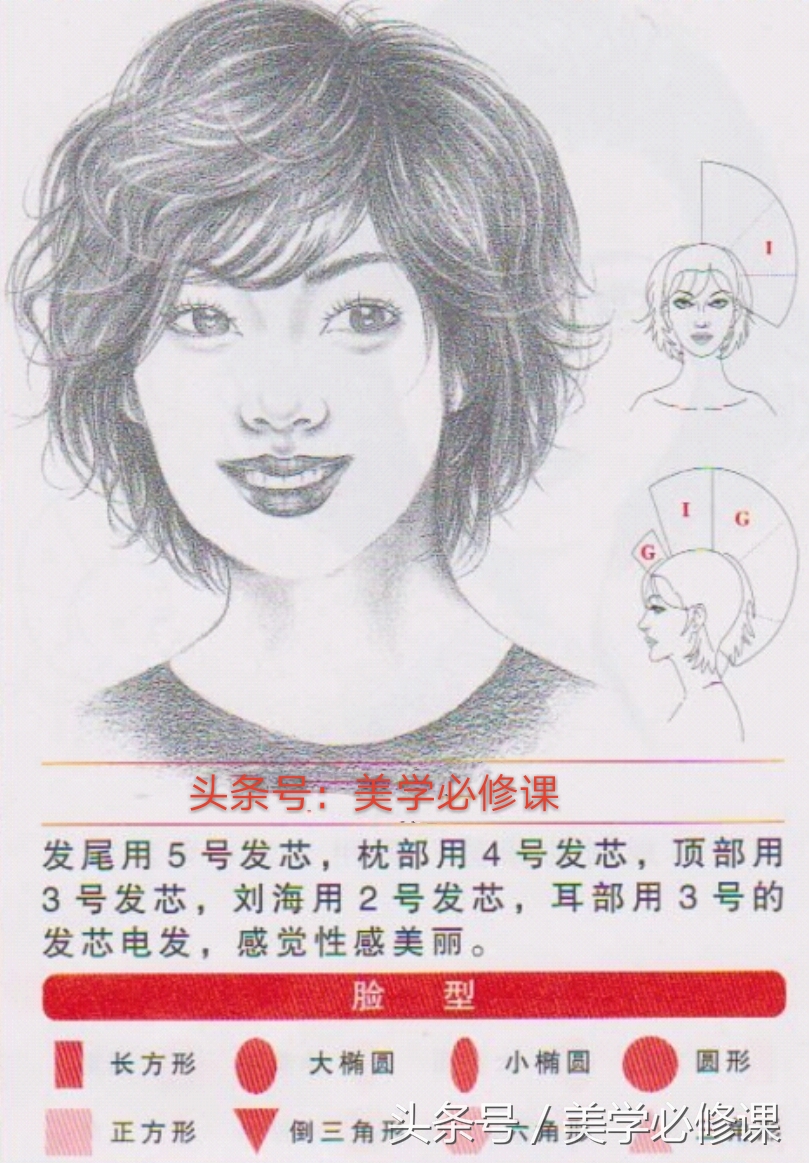 I
I
G
G
头条号：美学必修课
发尾用5号发芯，枕部用4号发芯，顶部用
3号发芯，刘海用2号发芯，耳部用3号的
发芯电发，感觉性感美丽。
脸 型
长方形 大椭圆 小椭圆 圆形
正方形 倒三角形 六角形
头条号 / 美学必修课